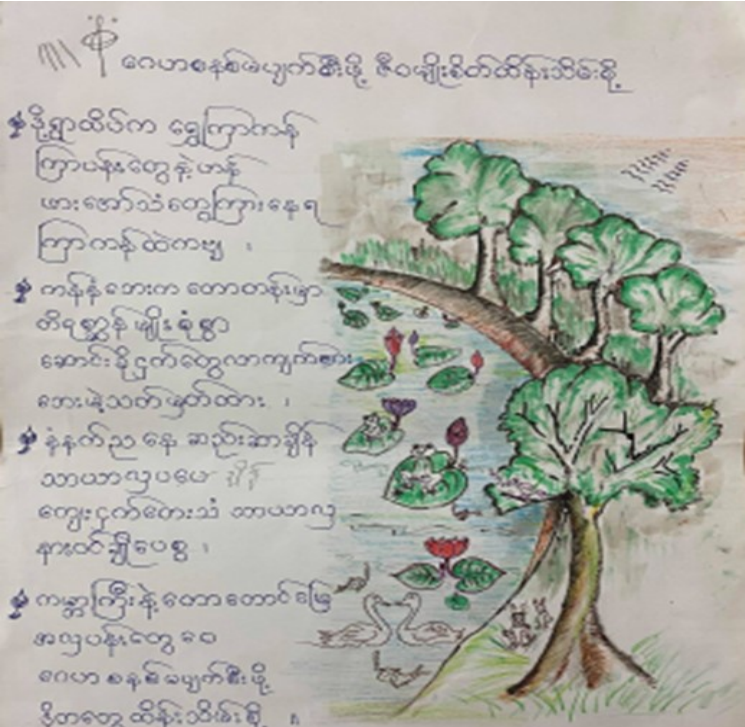 ဂေဟစနစ်မပျက်စီးဖို့ ဇီဝမျိုးစိတ်ထိန်းသိမ်းစို့
ဒို့ရွာထိပ်က ရွှေကြာကန်
ကြာပန်းတွေနဲ့ဟန်
ဖားအော်သံတွေကြားနေရ
ကြာကန်ထဲကဗျ ၊
ကန်နံဘေးက တောတန်းမှာ
တိရစ္ဆာန်မျိုးစုံစွာ
ဆောင်းခိုငှက်တွေလာကျက်စား
ဘေးမဲ့သတ်မှတ်ထား ၊
နံနက်ညနေ ဆည်းဆာချိန်
သာယာလှပပေ
ကျေးငှက်တေးသံ သာယာလှ
နားဝင်ချိုပေစွ ၊
ကမ္ဘာကြီးနဲ့တောတောင်မြေ
အလှပန်းတွေ ဝေ
ဂေဟစနစ်မပျက်စီးဖို့
ဒို့တတွေ ထိန်းသိမ်းစို့ ။